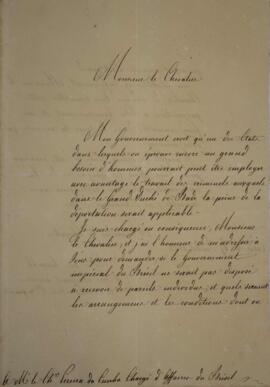 Monsieur le Chevalier
Mon Gouvernement croit qu'un des Etats
dans lesquels on éprouve encore un grand
besoin d'hommes pourrait peut être employer
avec avantage le travail de criminels auxquels
dans le Grand Duché de Bade la peine de la
déportation serait applicable.
Je suis chargé en conséquence, Monsieur
le Chevalier, et j'ai l'honneur de m'adresser à
Vous pour demander si le Gouvernement
impérial du Brésil ne serait pas disposé
à recevoir de pareils individus, et quels seraient
les arrangements et les conditions dont on
A M. le Chr. Pereira da Cunha Chargé d'Affaires du Brésil